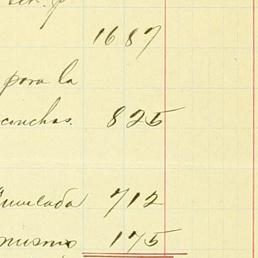 1687
para la
conchas. 825
712
mismo 175